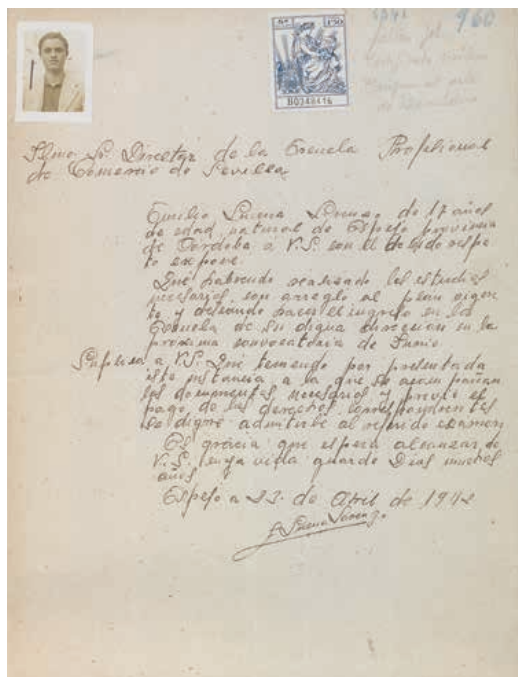 960
8ª 1'50
B0348416
Ilmo Sr Director de la Escuela Profesional
de Comercio de Sevilla
Emilio Luena de 17 años
de edad, natural de Espejo provincia
de Córdoba a V.S. con el debido respe
to expone
Que habiendo realizado los estudios
necesarios, con arreglo al plan vigen
te y deseando hacer el ingreso en la
Escuela de su digna direccion en la
proxima convocatoria de Junio.
Suplica a V.S. Que teniendo por presentada
esta instancia a la que se acompañan
los documentos, necesarios y previo el
pago, de los derechos, correspondientes
se digne admitirle al referido examen
Es gracia que espera alcanzar, de
V.S. cuya vida guarde Dios muchos
años
Espejo a 23. de Abril de 1942